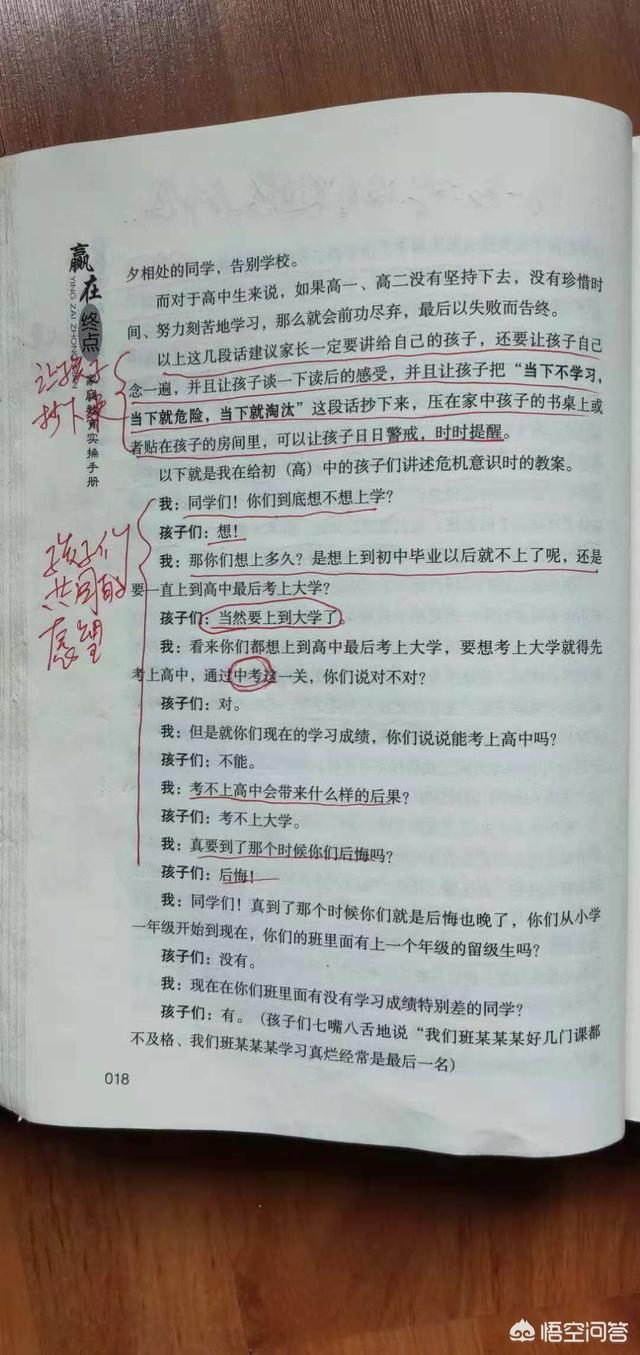 赢在终点
YING ZAI ZHONG DIAN
家庭教育实操手册
夕相处的同学，告别学校。
而对于高中生来说，如果高一、高二没有坚持下去，没有珍惜时
间、努力刻苦地学习，那么就会前功尽弃，最后以失败而告终。
以上这几段话建议家长一定要讲给自己的孩子，还要让孩子自己
念一遍，并且让孩子谈一下读后的感受，并且让孩子把“当下不学习，
当下就危险，当下就淘汰”这段话抄下来，压在家中孩子的书桌上或
者贴在孩子的房间里，可以让孩子日日警戒，时时提醒。
让孩子
抄下来
以下就是我在给初（高）中的孩子们讲述危机意识时的教案。
我：同学们！你们到底想不想上学？
孩子们：想！
我：那你们想上多久？是想上到初中毕业以后就不上了呢，还是
要一直上到高中最后考上大学？
孩子们：当然要上到大学了。
孩子们
共同的
愿望
我：看来你们都想上到高中最后考上大学，要想考上大学就得先
考上高中，通过中考这一关，你们说对不对？
孩子们：对。
我：但是就你们现在的学习成绩，你们说说能考上高中吗？
孩子们：不能。
我：考不上高中会带来什么样的后果？
孩子们：考不上大学。
我：真要到了那个时候你们后悔吗？
孩子们：后悔！
我：同学们！真到了那个时候你们就是后悔也晚了，你们从小学
一年级开始到现在，你们的班里面有上一个年级的留级生吗？
孩子们：没有。
我：现在在你们班里面有没有学习成绩特别差的同学？
孩子们：有。（孩子们七嘴八舌地说“我们班某某某好几门课都
不及格、我们班某某某学习真烂经常是最后一名）
018
悟空问答